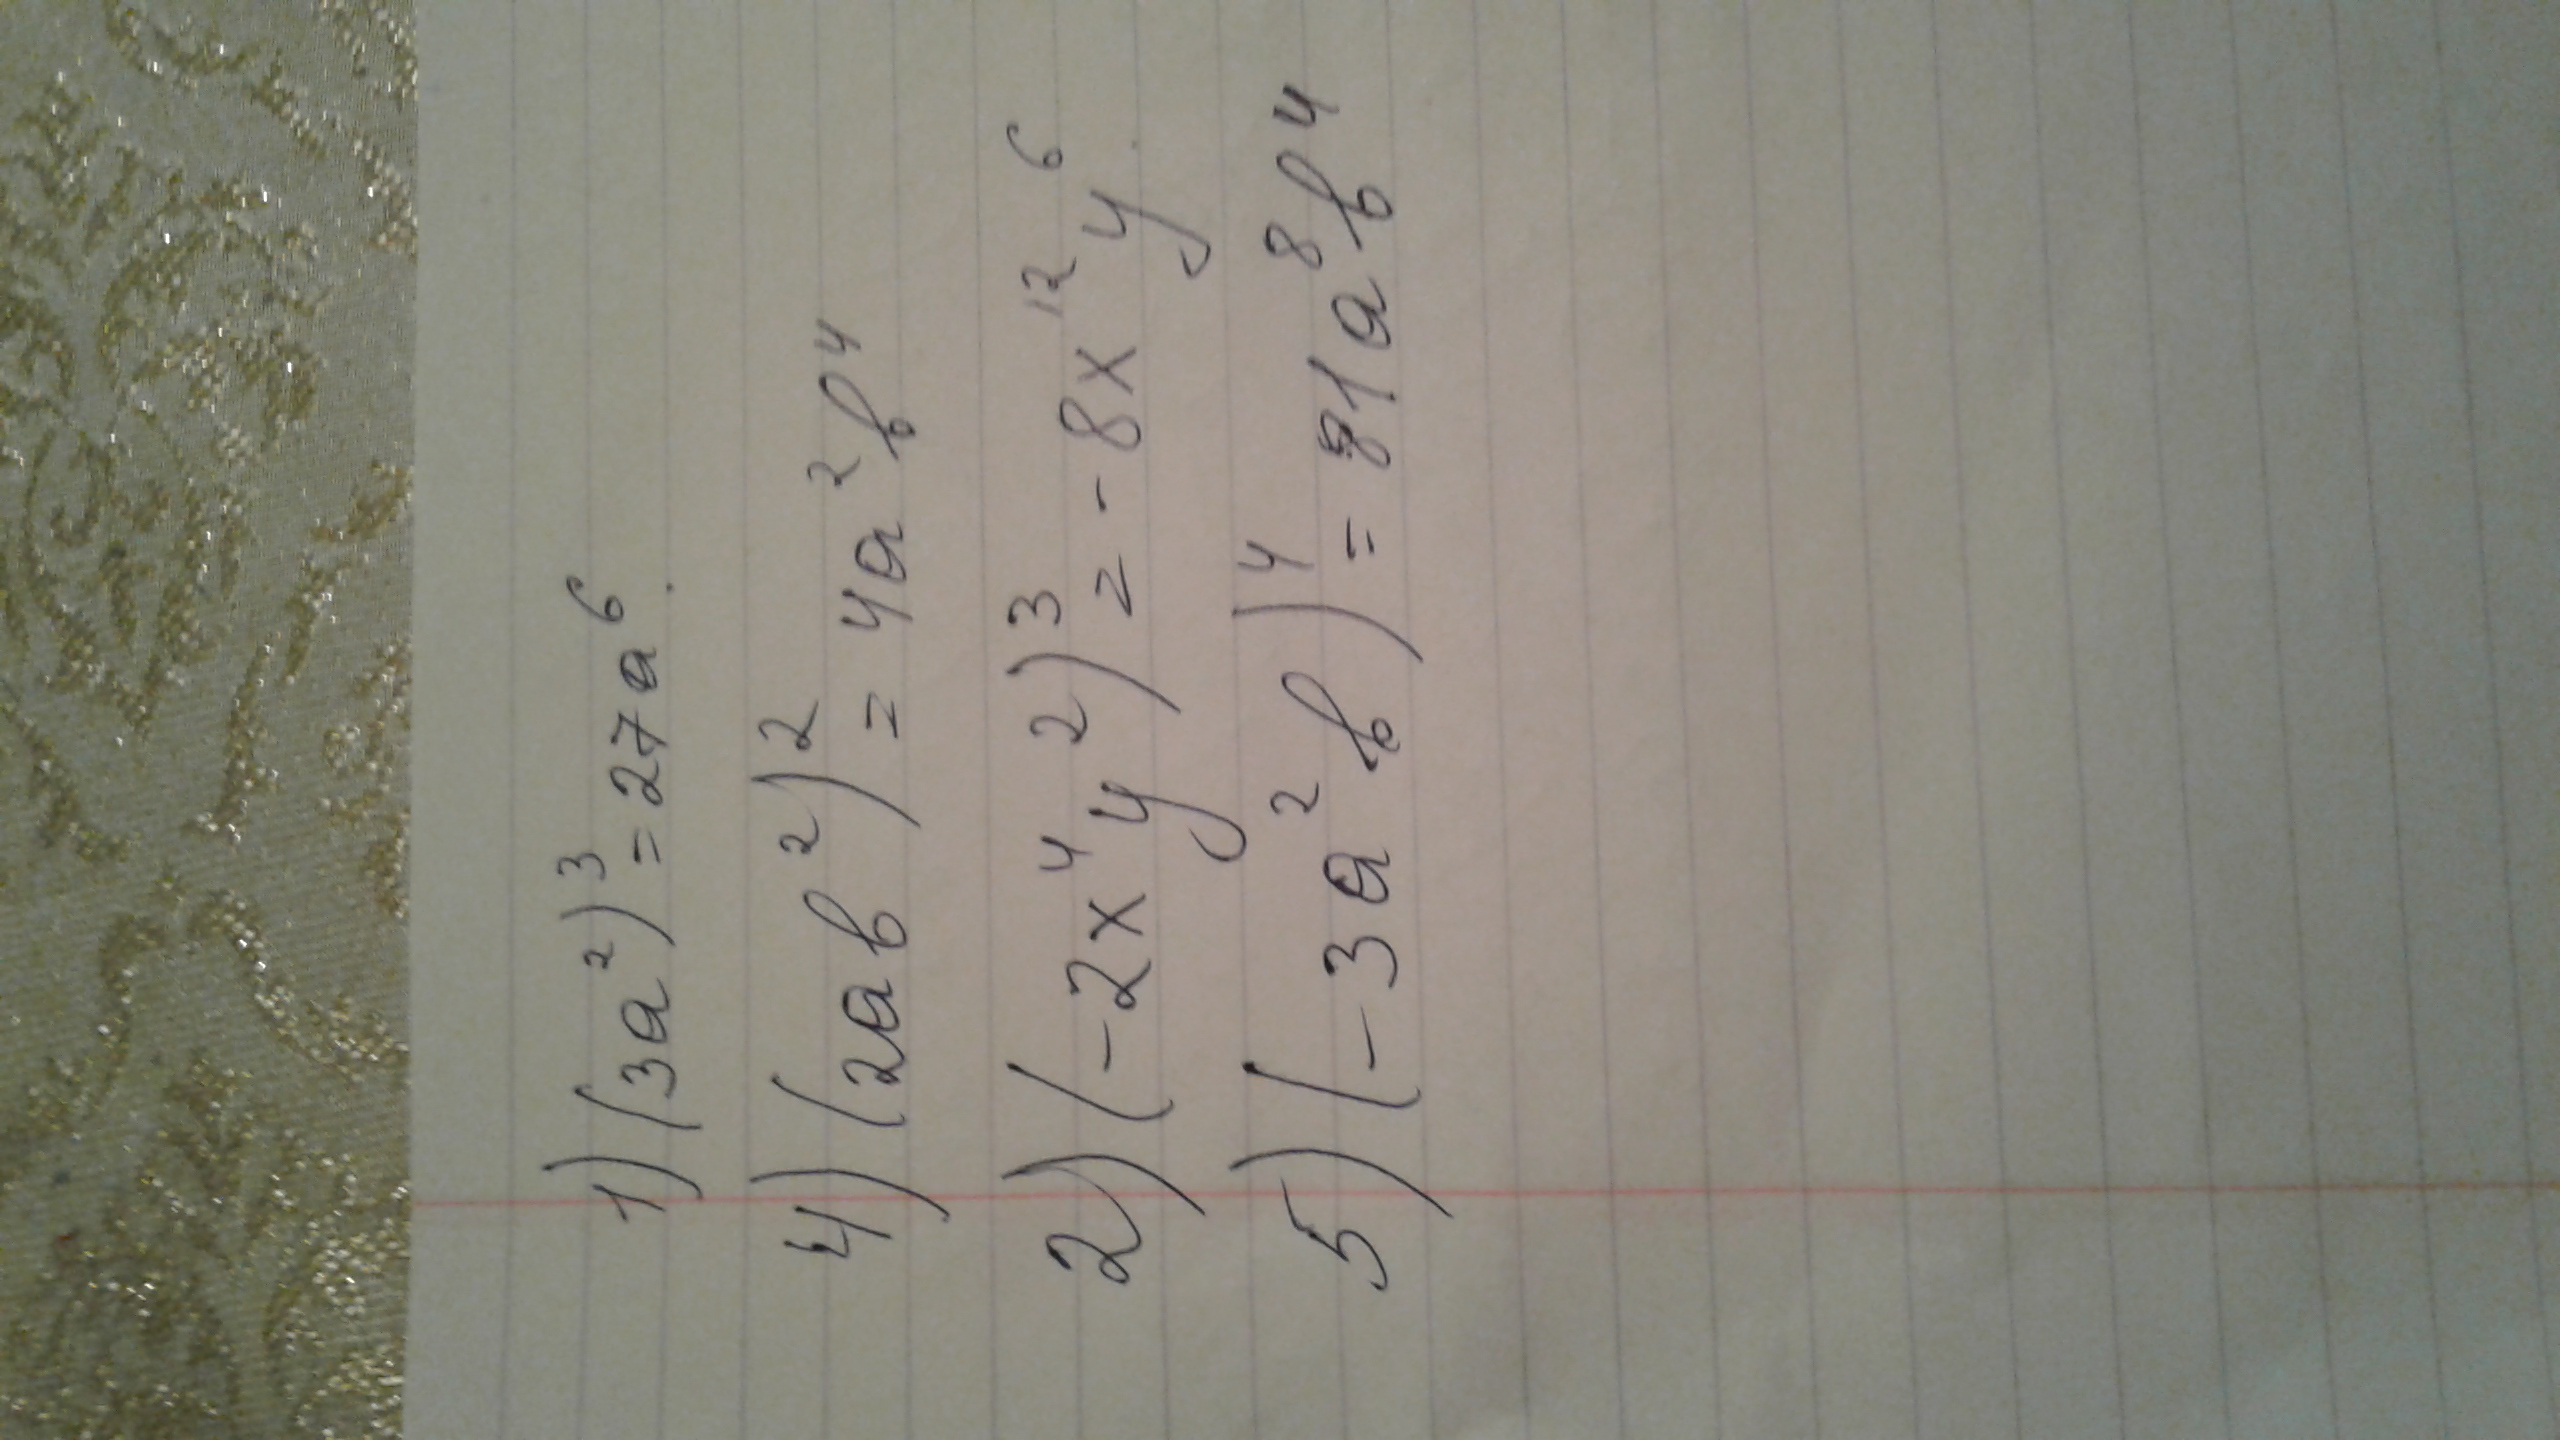 1) (3a²)³ = 27a⁶.
4) (2ab²)² = 4a²b⁴
2) (-2x⁴y²)³ = -8x¹²y⁶
5) (-3a²b)⁴ = 81a⁸b⁴